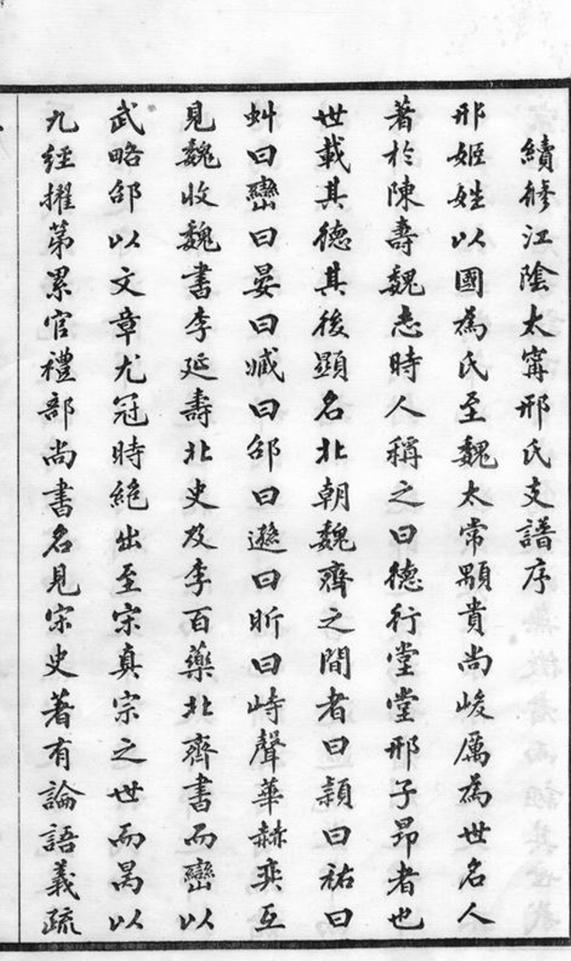 續修江陰太寗邢氏支譜序
邢姬姓以國為氏至魏太常顒貴尚峻厲為世名人
著於陳壽魏志時人稱之曰德行堂堂邢子昂者也
世載其德其後顯名北朝魏齊之間者曰穎曰祐曰
虯曰巒曰晏曰臧曰邵曰遜曰昕曰峙聲華赫奕互
見魏收魏書李延壽北史及李百藥北齊書而巒以
武略邵以文章尤冠時絕出至宋真宗之世而昺以
九經擢第累官禮部尚書名見宋史著有論語義疏